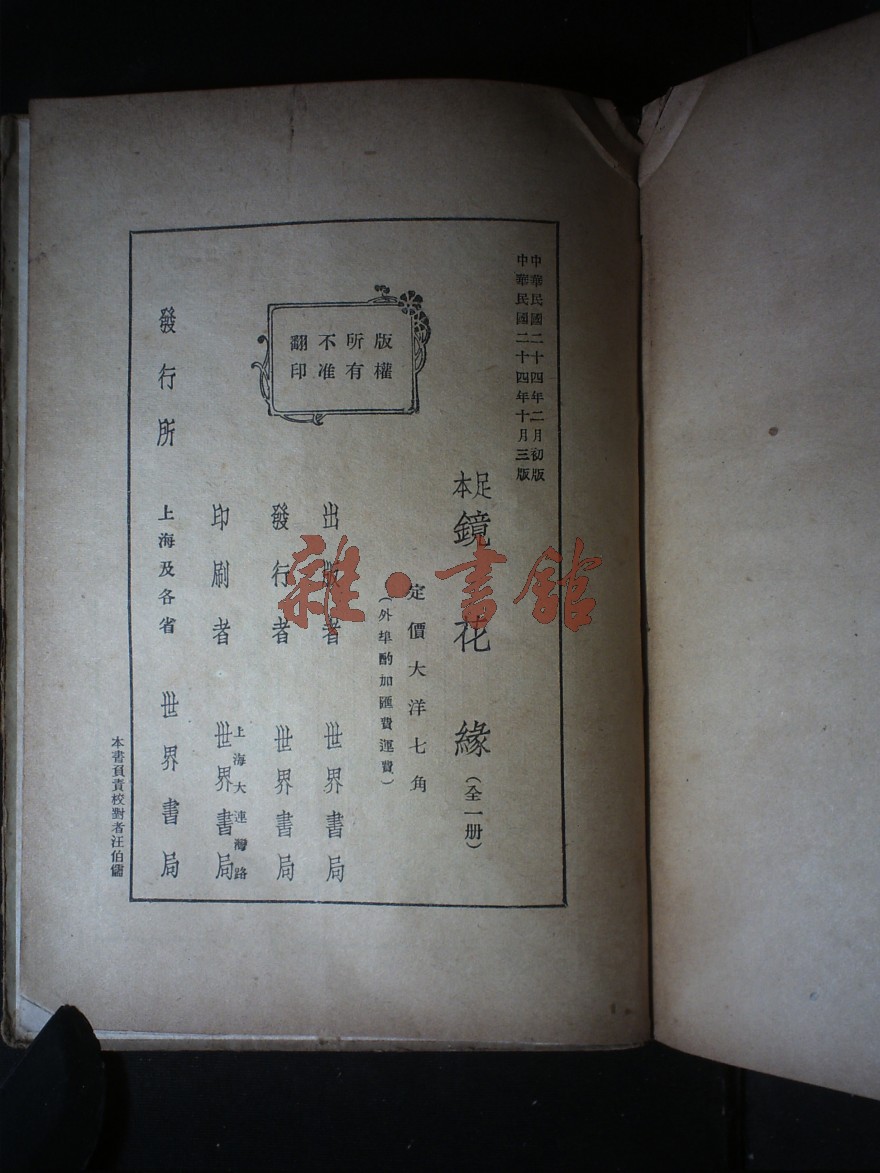 中華民國二十四年二月初版
中華民國二十四年十月三版
足本
鏡花緣（全一册）
定價大洋七角
（外埠酌加匯費運費）
版權
所有
不准
翻印
出版者 世界書局
發行者 世界書局
上海大連灣路
印刷者 世界書局
發行所 上海及各省 世界書局
本書頁責校對者汪伯儒
雜·書館